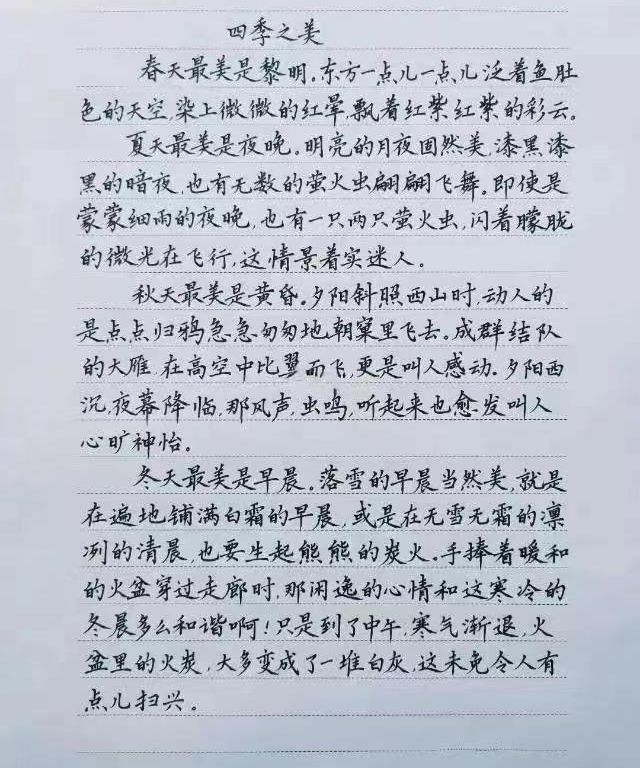 四季之美
春天最美是黎明。东方一点儿一点儿泛着鱼肚
色的天空,染上微微的红晕,飘着红紫红紫的彩云。
夏天最美是夜晚。明亮的月夜固然美,漆黑漆
黑的暗夜,也有无数的萤火虫翩翩飞舞。即使是
蒙蒙细雨的夜晚,也有一只两只萤火虫,闪着朦胧
的微光在飞行,这情景着实迷人。
秋天最美是黄昏。夕阳斜照西山时,动人的
是点点归鸦急急匆匆地朝窠里飞去。成群结队
的大雁,在高空中比翼而飞,更是叫人感动。夕阳西
沉,夜幕降临,那风声,虫鸣,听起来也愈发叫人
心旷神怡。
冬天最美是早晨。落雪的早晨当然美,就是
在遍地铺满白霜的早晨,或是在无雪无霜的凛
冽的清晨,也要生起熊熊的炭火。手捧着暖和
的火盆穿过走廊时,那闲逸的心情和这寒冷的
冬晨多么和谐啊!只是到了中午,寒气渐退,火
盆里的火炭,大多变成了一堆白灰,这未免令人有
点儿扫兴。